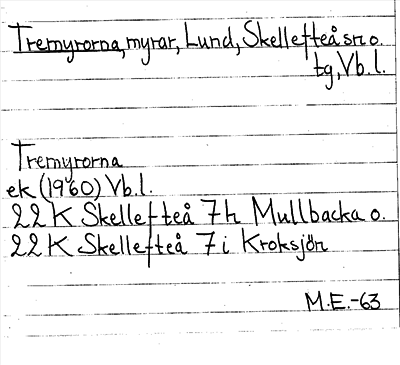 Tremyrorna, myrar, Lund, Skellefteå sn o.
tg, Vb.l.
Tremyrorna
ek (1960) Vb.l.
22 K Skellefteå 7h Mullbacka o.
22 K Skellefteå 7i Kroksjön
M.E.-63